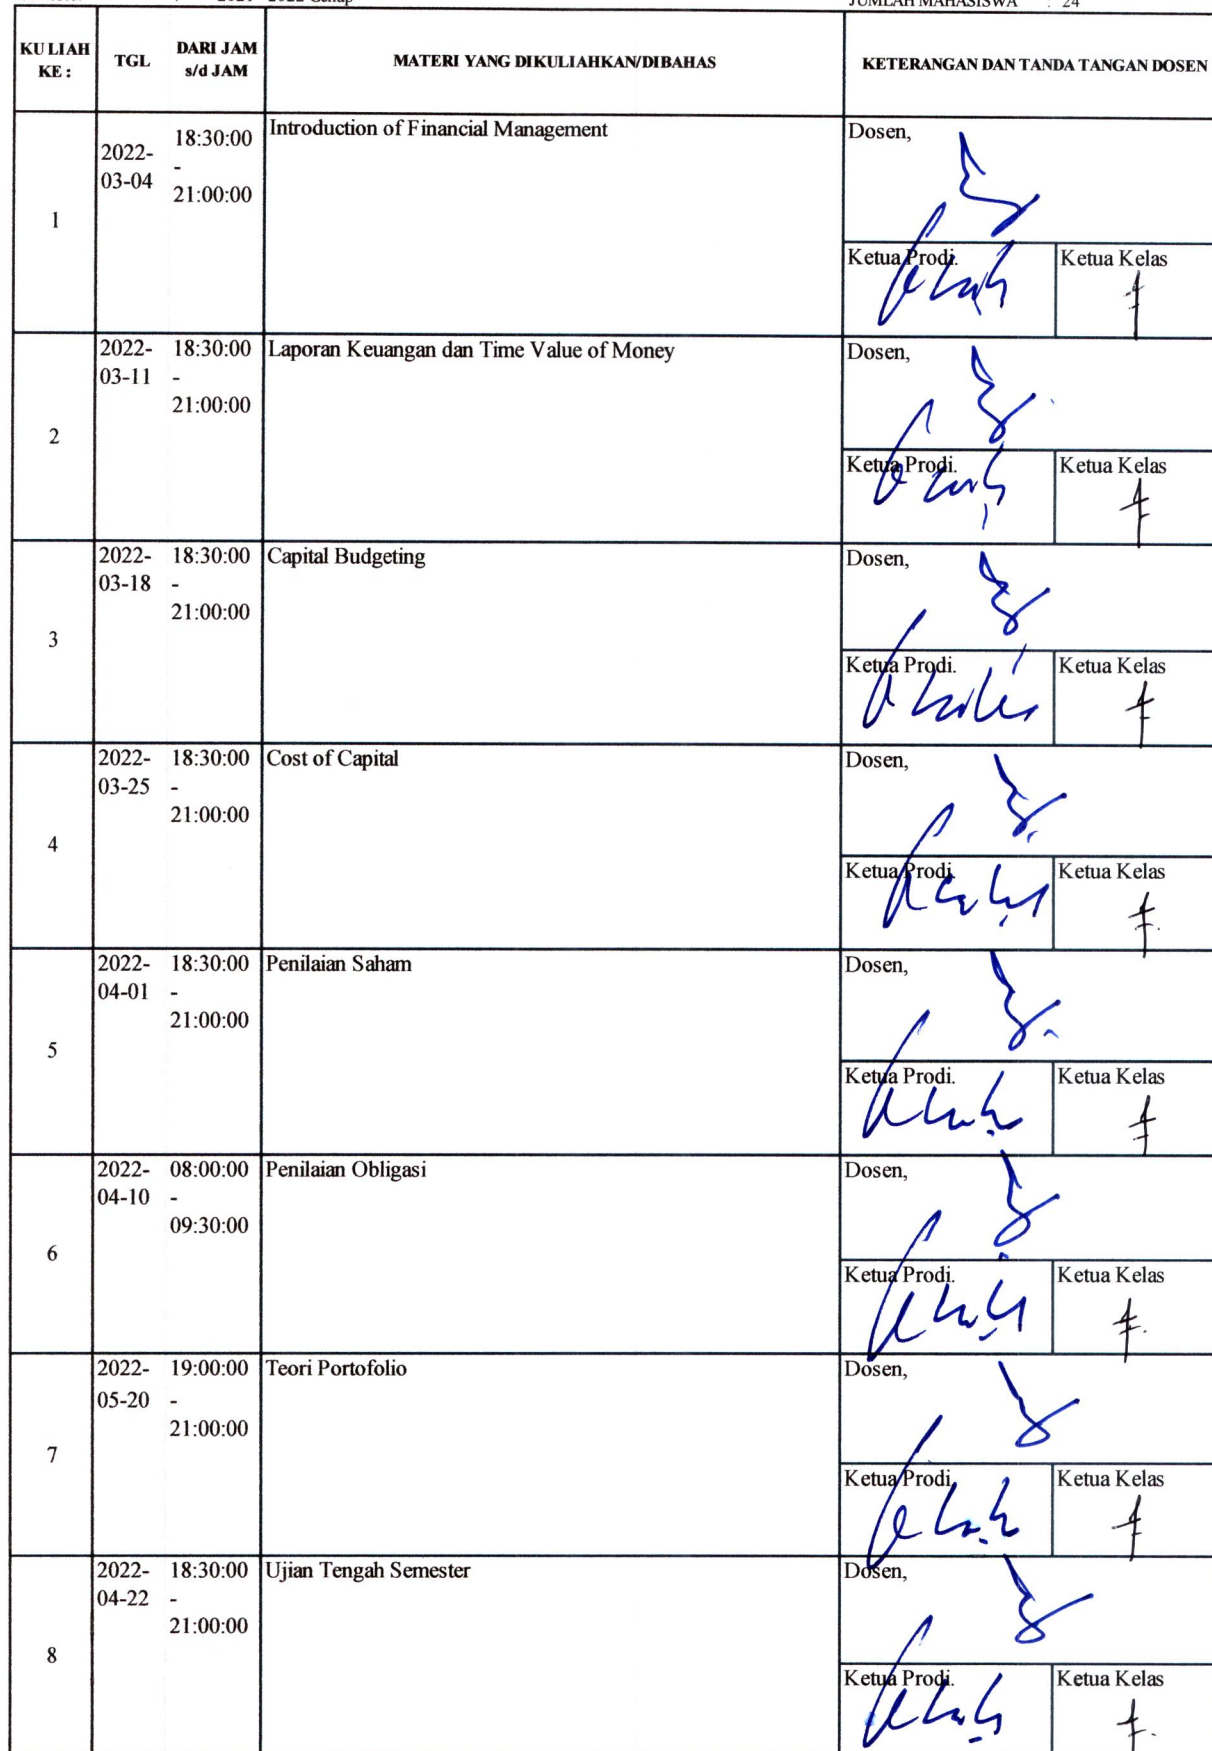 2022 Genap
JUMLAH MAHASISWA : 24
KULIAH KE :
TGL
DARI JAM s/d JAM
MATERI YANG DIKULIAHKAN/DIBAHAS
KETERANGAN DAN TANDA TANGAN DOSEN
1
2022-
03-04
18:30:00
-
21:00:00
Introduction of Financial Management
Dosen,
Ketua Prodi.
Ketua Kelas
2
2022-
03-11
18:30:00
-
21:00:00
Laporan Keuangan dan Time Value of Money
Dosen,
Ketua Prodi.
Ketua Kelas
3
2022-
03-18
18:30:00
-
21:00:00
Capital Budgeting
Dosen,
Ketua Prodi.
Ketua Kelas
4
2022-
03-25
18:30:00
-
21:00:00
Cost of Capital
Dosen,
Ketua Prodi.
Ketua Kelas
5
2022-
04-01
18:30:00
-
21:00:00
Penilaian Saham
Dosen,
Ketua Prodi.
Ketua Kelas
6
2022-
04-10
08:00:00
-
09:30:00
Penilaian Obligasi
Dosen,
Ketua Prodi.
Ketua Kelas
7
2022-
05-20
19:00:00
-
21:00:00
Teori Portofolio
Dosen,
Ketua Prodi.
Ketua Kelas
8
2022-
04-22
18:30:00
-
21:00:00
Ujian Tengah Semester
Dosen,
Ketua Prodi.
Ketua Kelas